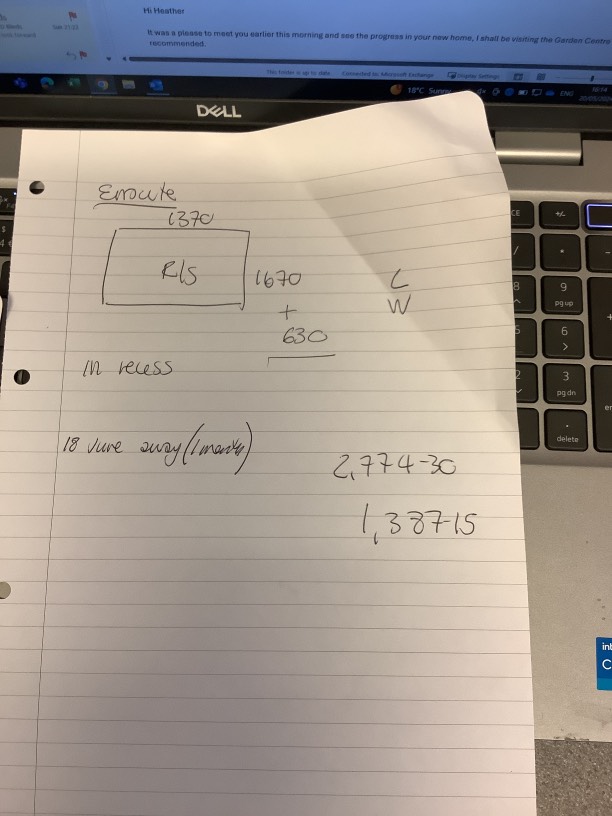 Hi Heather
It was a please to meet you earlier this morning and see the progress in your new home, I shall be visiting the Garden Centre
recommended.
This folder is up to date Connected to: Microsoft Exchange Display Settings
18°C Sunny ENG 16:14
DELL
1370
R/S
1670
+
630
L
W
in recess
18 June away
2,774-30
1,387-15
CE +/-
9
pg up
6
3
pg dn
delete